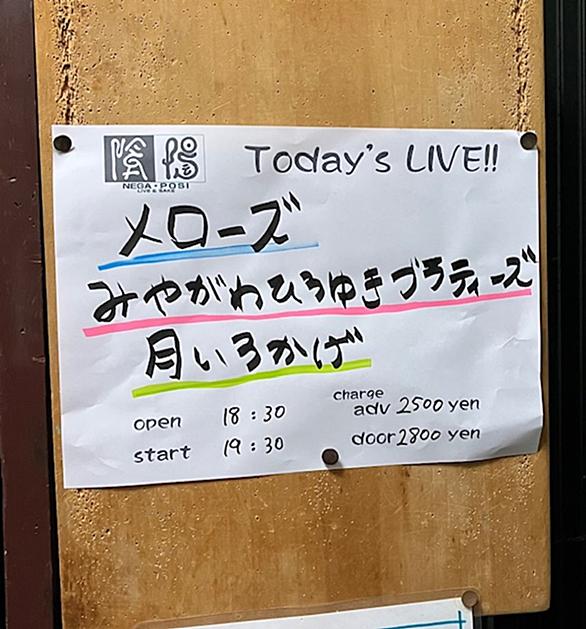 陰陽
NEGA・POSI
LIVE & SAKE
Today's LIVE!!
メローズ
みやがわひろゆきブラディーズ
月いろかげ
open 18:30
start 19:30
charge
adv 2500 yen
door 2800 yen